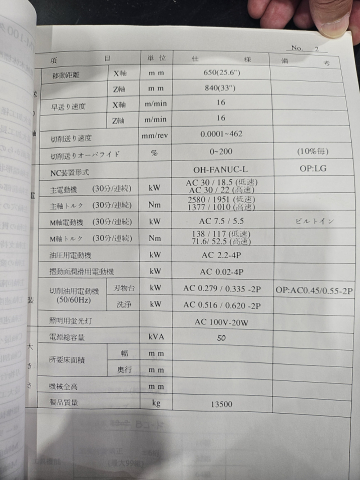 No. 2
項 目 単 位 仕 様 備 考
移動距離 X軸 m m 650(25.6")
Z軸 m m 840(33")
早送り速度 X軸 m/min 16
Z軸 m/min 16
切削送り速度 mm/rev 0.0001~462
切削送りオーバライド % 0~200 (10%毎)
NC装置形式 OH-FANUC-L OP:LG
主電動機 (30分/連続) kW AC 30 / 18.5 (低速)
AC 30 / 22 (高速)
主軸トルク (30分/連続) Nm 2580 / 1951 (低速)
1377 / 1010 (高速)
M軸電動機 (30分/連続) kW AC 7.5 / 5.5 ビルトイン
M軸トルク (30分/連続) Nm 138 / 117 (低速)
71.6/ 52.5 (高速)
油圧用電動機 kW AC 2.2-4P
摺動面潤滑用電動機 kW AC 0.02-4P
切削油用電動機 刃物台 kW AC 0.279 / 0.335 -2P OP:AC0.45/0.55-2P
(50/60Hz) 洗浄 kW AC 0.516 / 0.620 -2P
照明用蛍光灯 AC 100V-20W
電源総容量 kVA 50
所要床面積 幅 m m
奥行 m m
機械全高 m m
製品質量 kg 13500
電
装
大
き
さ